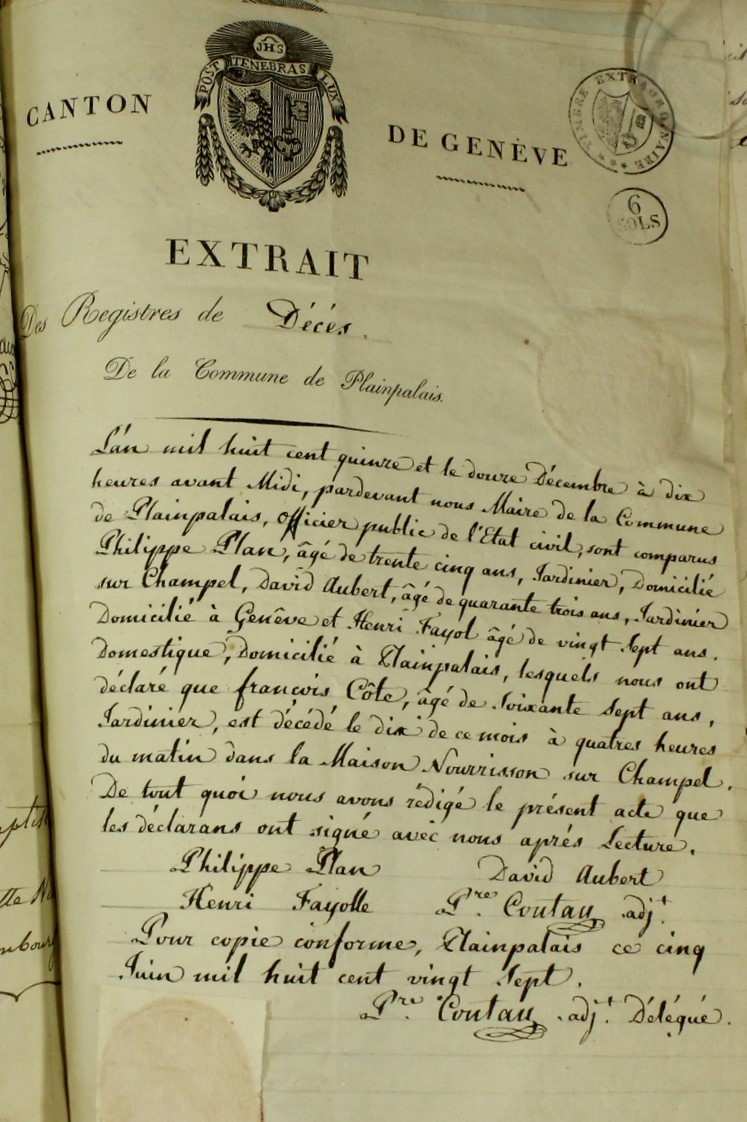 JHS
POST TENEBRAS LUX
CANTON DE GENÈVE
TIMBRE EXTRAORDINAIRE
6
SOLS
EXTRAIT
Des Registres de Décès.
De la Commune de Plainpalais.
L'án mil huit cent quinze et le douze Décembre à dix
heures avant Midi, pardevant nous Maire de la Commune
de Plainpalais, officier public de l'Etat civil, sont comparus
Philippe Plan, âgé de trente cinq ans, Jardinier, Domicilié
sur Champel, David Aubert, âgé de quarante trois ans, Jardinier
Domicilié à Genêve et Henri Fayol âgé de vingt Sept ans.
Domestique, Domicilié à Plainpalais, lesquels nous ont
déclaré que françois Côte, âgé de Soixante Sept ans,
Jardinier, est décédé le dix de ce mois à quatres heures
du matin dans la Maison Nourrisson sur Champel.
De tout quoi nous avons rédigé le présent acte que
les déclarans ont signé avec nous aprés Lecture.
Philippe Plan David Aubert
Henri Fayolle P.re Coutau adj.t
Pour copie conforme, Plainpalais ce cinq
Juin mil huit cent vingt Sept.
P.re Coutau adj.t Délégué.